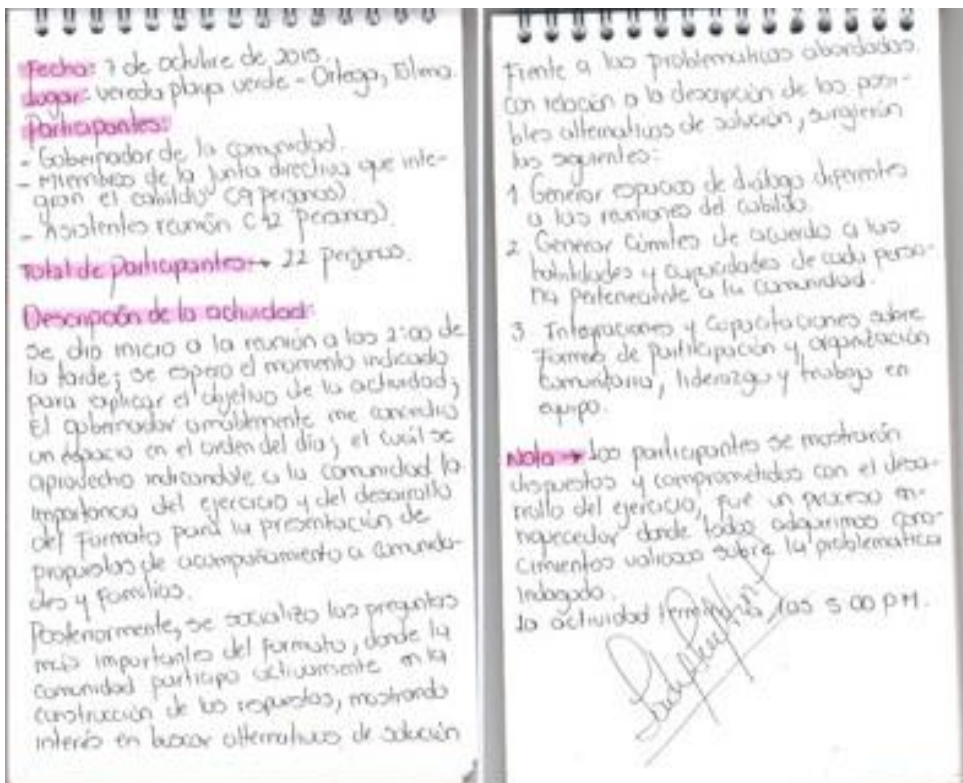 Fecha: 7 de octubre de 2015.
Lugar: vereda playa verde - Ortega, Tolima.
Participantes:
- Gobernador de la comunidad.
- Miembros de la Junta directiva que inte-
gran el cabildo (9 personas).
- Asistentes reunión (12 personas).
Total de Participantes: → 22 personas.
Descripción de la actividad:
Se dio inicio a la reunión a las 2:00 de
la tarde; se espero el momento indicado
para explicar el objetivo de la actividad;
El gobernador amablemente me concedio
un espacio en el orden del día; el cuál se
aprovecho indicandole a la comunidad la
importancia del ejercicio y del desarrollo
del formato para la presentación de
propuestas de acompañamiento a comunida-
des y familias.
Posteriormente, se socializo las preguntas
más importantes del formato, donde la
comunidad participo activamente en la
construcción de las respuestas, mostrando
interés en buscar alternativas de solución
Frente a las problematicas abordadas.
con relación a la descripción de las posi-
bles alternativas de solución, surgierón
las siguientes:
1 Generar espacios de diálogo diferentes
a las reuniones del cabildo.
2 Generar Cómites de acuerdo a las
habilidades y capacidades de cada perso-
na perteneciente a la comunidad.
3 Integraciones y Capacitaciones sobre
Formas de participación y organización
comunitaria, liderazgo y trabajo en
equipo.
Nota → Los participantes se mostrarón
dispuestos y comprometidos con el desa-
rrollo del ejercicio, fue un proceso en-
riquecedor donde todos adquirimos cono-
cimientos valiosos sobre la problematica
Indagada.
La actividad termino a las 5:00 PM.